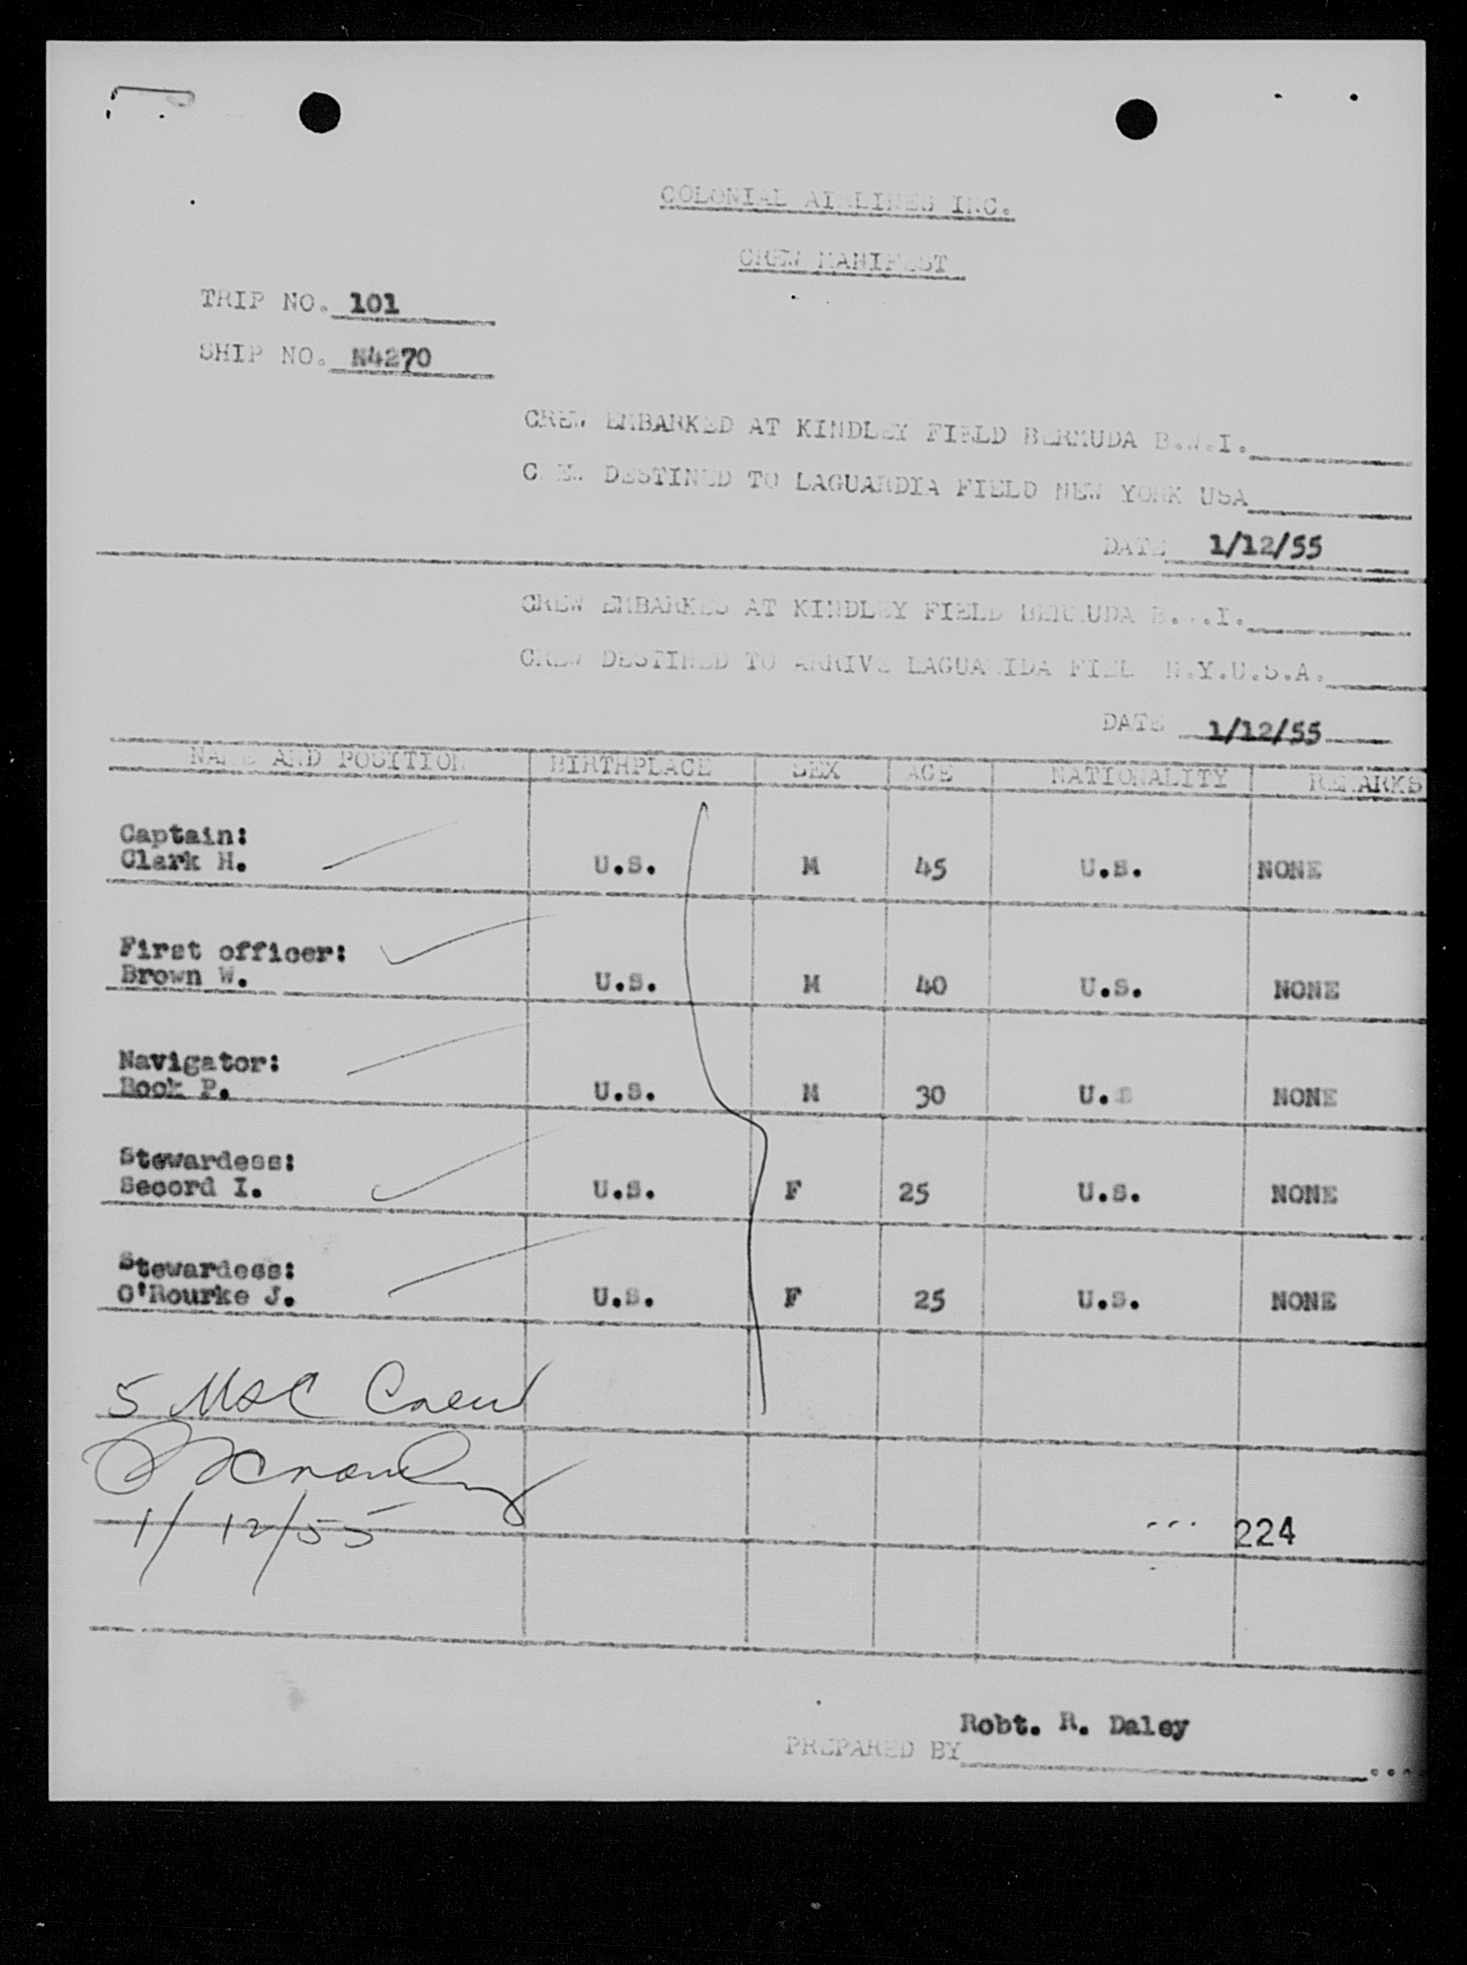 COLONIAL AIRLINES INC.
CREW MANIFEST
TRIP NO. 101
SHIP NO. N4270
CREW EMBARKED AT KINDLEY FIELD BERMUDA B.W.I.
CREW DESTINED TO LAGUARDIA FIELD NEW YORK USA
DATE 1/12/55
CREW EMBARKED AT KINDLEY FIELD BERMUDA B.W.I.
CREW DESTINED TO ARRIVE LAGUARIDA FIELD N.Y.U.S.A.
DATE 1/12/55
NAME AND POSITION BIRTHPLACE SEX AGE NATIONALITY REMARKS
Captain:
Clark H. U.S. M 45 U.S. NONE
First officer:
Brown W. U.S. M 40 U.S. NONE
Navigator:
P. U.S. M 30 U.S NONE
Stewardess:
Secord I. U.S. F 25 U.S. NONE
Stewardess:
O'Rourke J. U.S. F 25 U.S. NONE
5 USC Crew
1/12/55
224
Robt. R. Daley
PREPARED BY